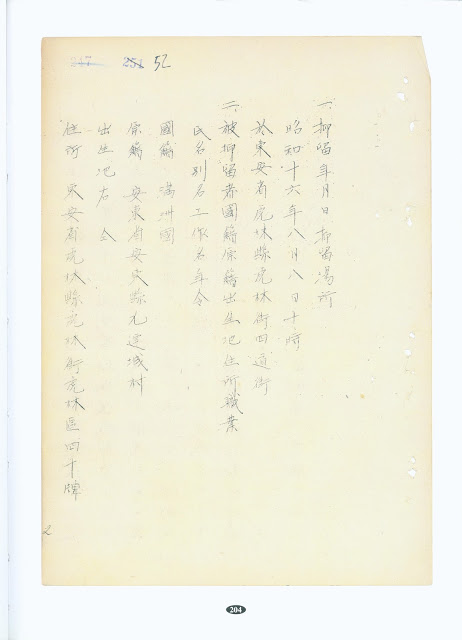 247 251 52
一、抑留年月日抑留場所
昭和十六年八月八日十時
於東安省虎林縣虎林街四道街
二、被抑留者國籍原籍出生地住所職業
氏名別名工作名年令
國籍 滿洲國
原籍 安東省安東縣九連城村
出生地右仝
住所 東安省虎林縣虎林街虎林區四十牌
2
204